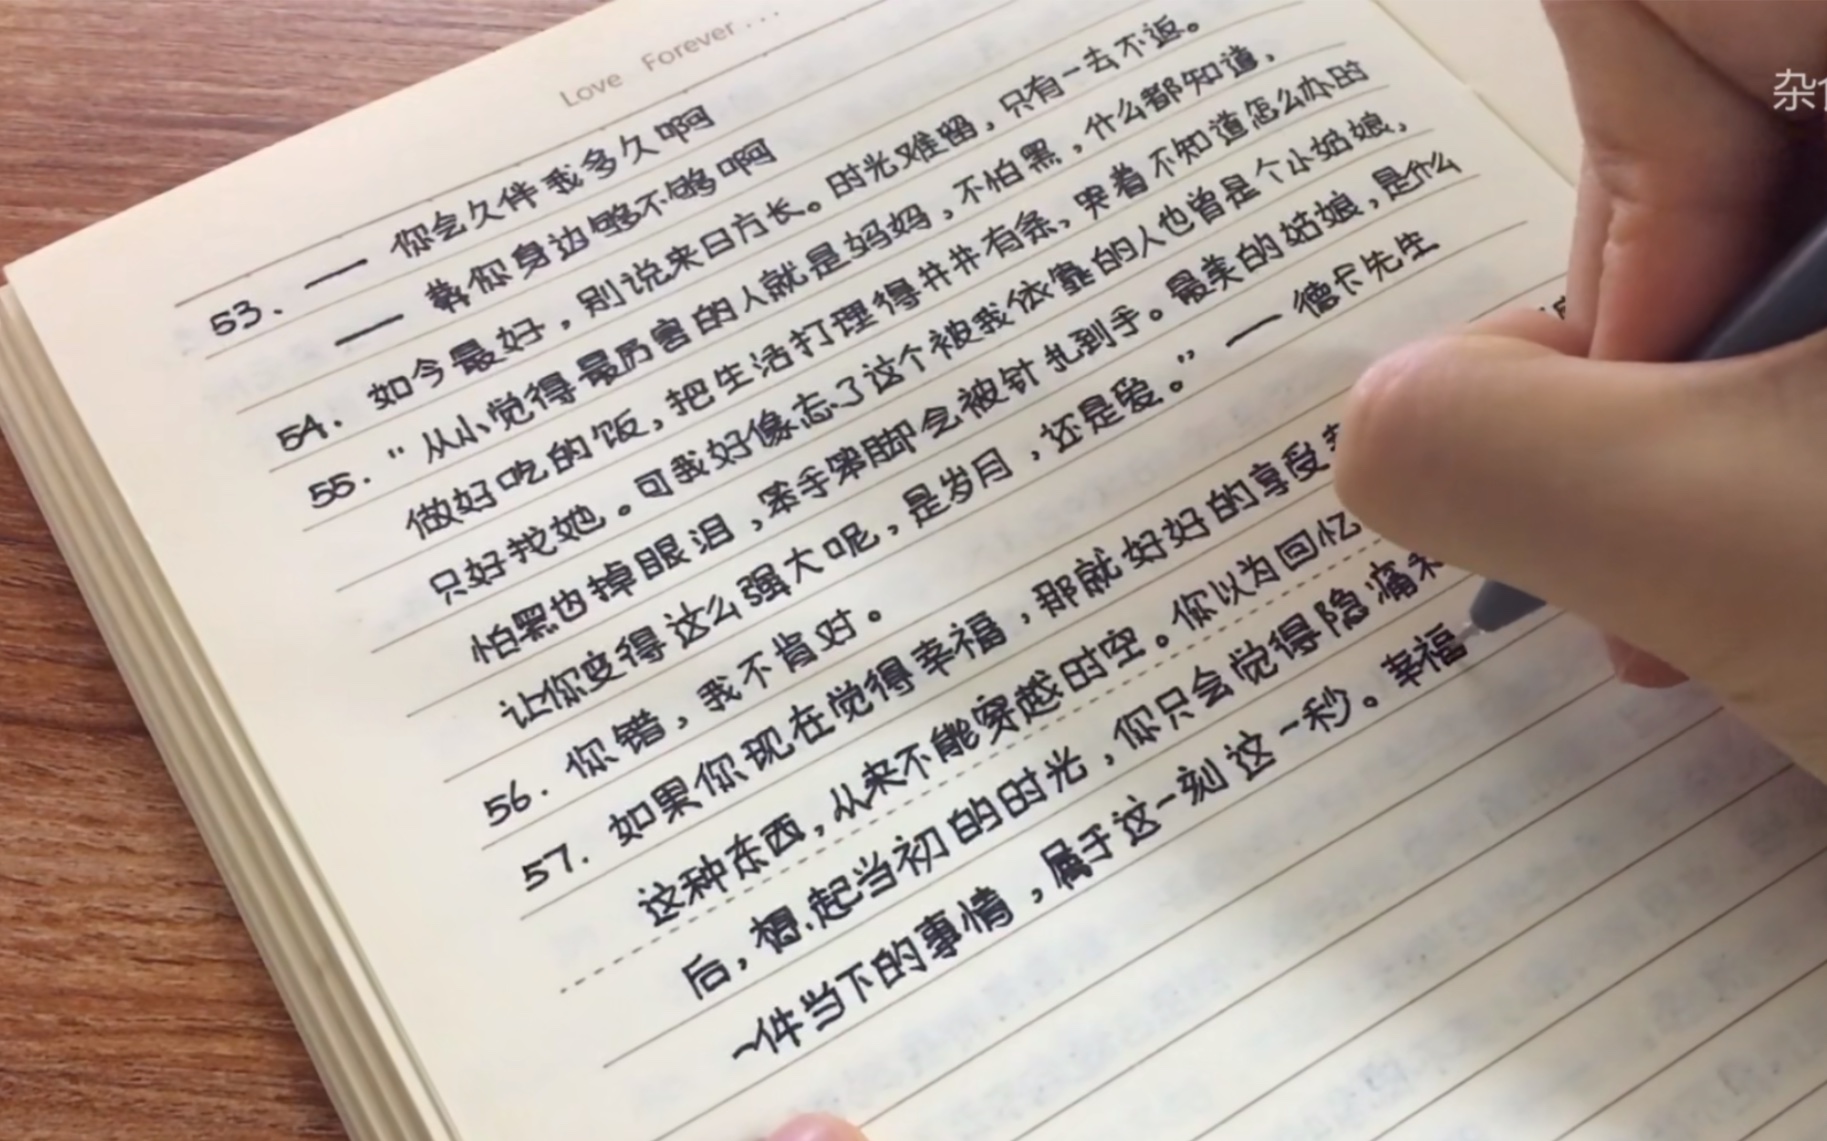 Love Forever...
53. — 你会久伴我多久啊
— 算你身边够不够啊
54. 如今最好，别说来日方长。时光难留，只有一去不返。
55. “从小觉得最厉害的人就是妈妈，不怕黑，什么都知道，
做好吃的饭，把生活打理得井井有条，哭着不知道怎么办时
只好找她。可我好像忘了这个被我依靠的人也曾是个小姑娘，
怕黑也掉眼泪，笨手笨脚会被针扎到手。最美的姑娘，是什么
让你变得这么强大呢，是岁月，还是爱。” — 德卡先生
56. 你错，我不肯对。
57. 如果你现在觉得幸福，那就好好的享受
这种东西，从来不能穿越时空。你以为回忆
后，想起当初的时光，你只会觉得隐痛和
一件当下的事情，属于这一刻这一秒。幸福
杂